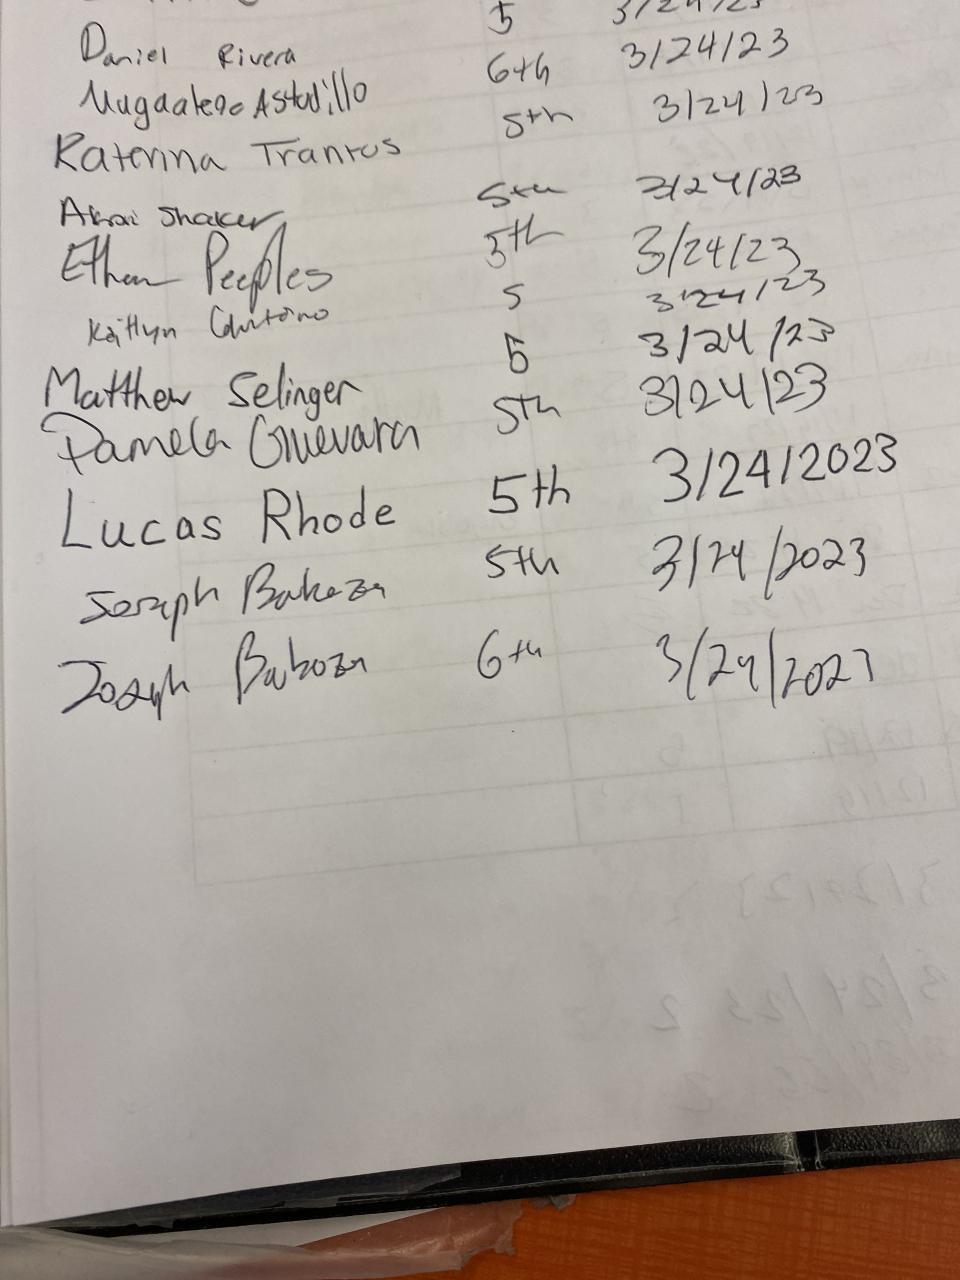 5 3/24/23
Daniel Rivera 6th 3/24/23
Astudillo 5th 3/24/23
Katerina Trantos 5th 3/24/23
Shaker 5th 3/24/23
Ethan Peeples 5 3/24/23
Kaitlyn 5 3/24/23
Matthew Selinger 5th 3/24/23
Pamela Guevara
Lucas Rhode 5th 3/24/2023
Joseph 5th 3/24/2023
Joseph 6th 3/24/2023